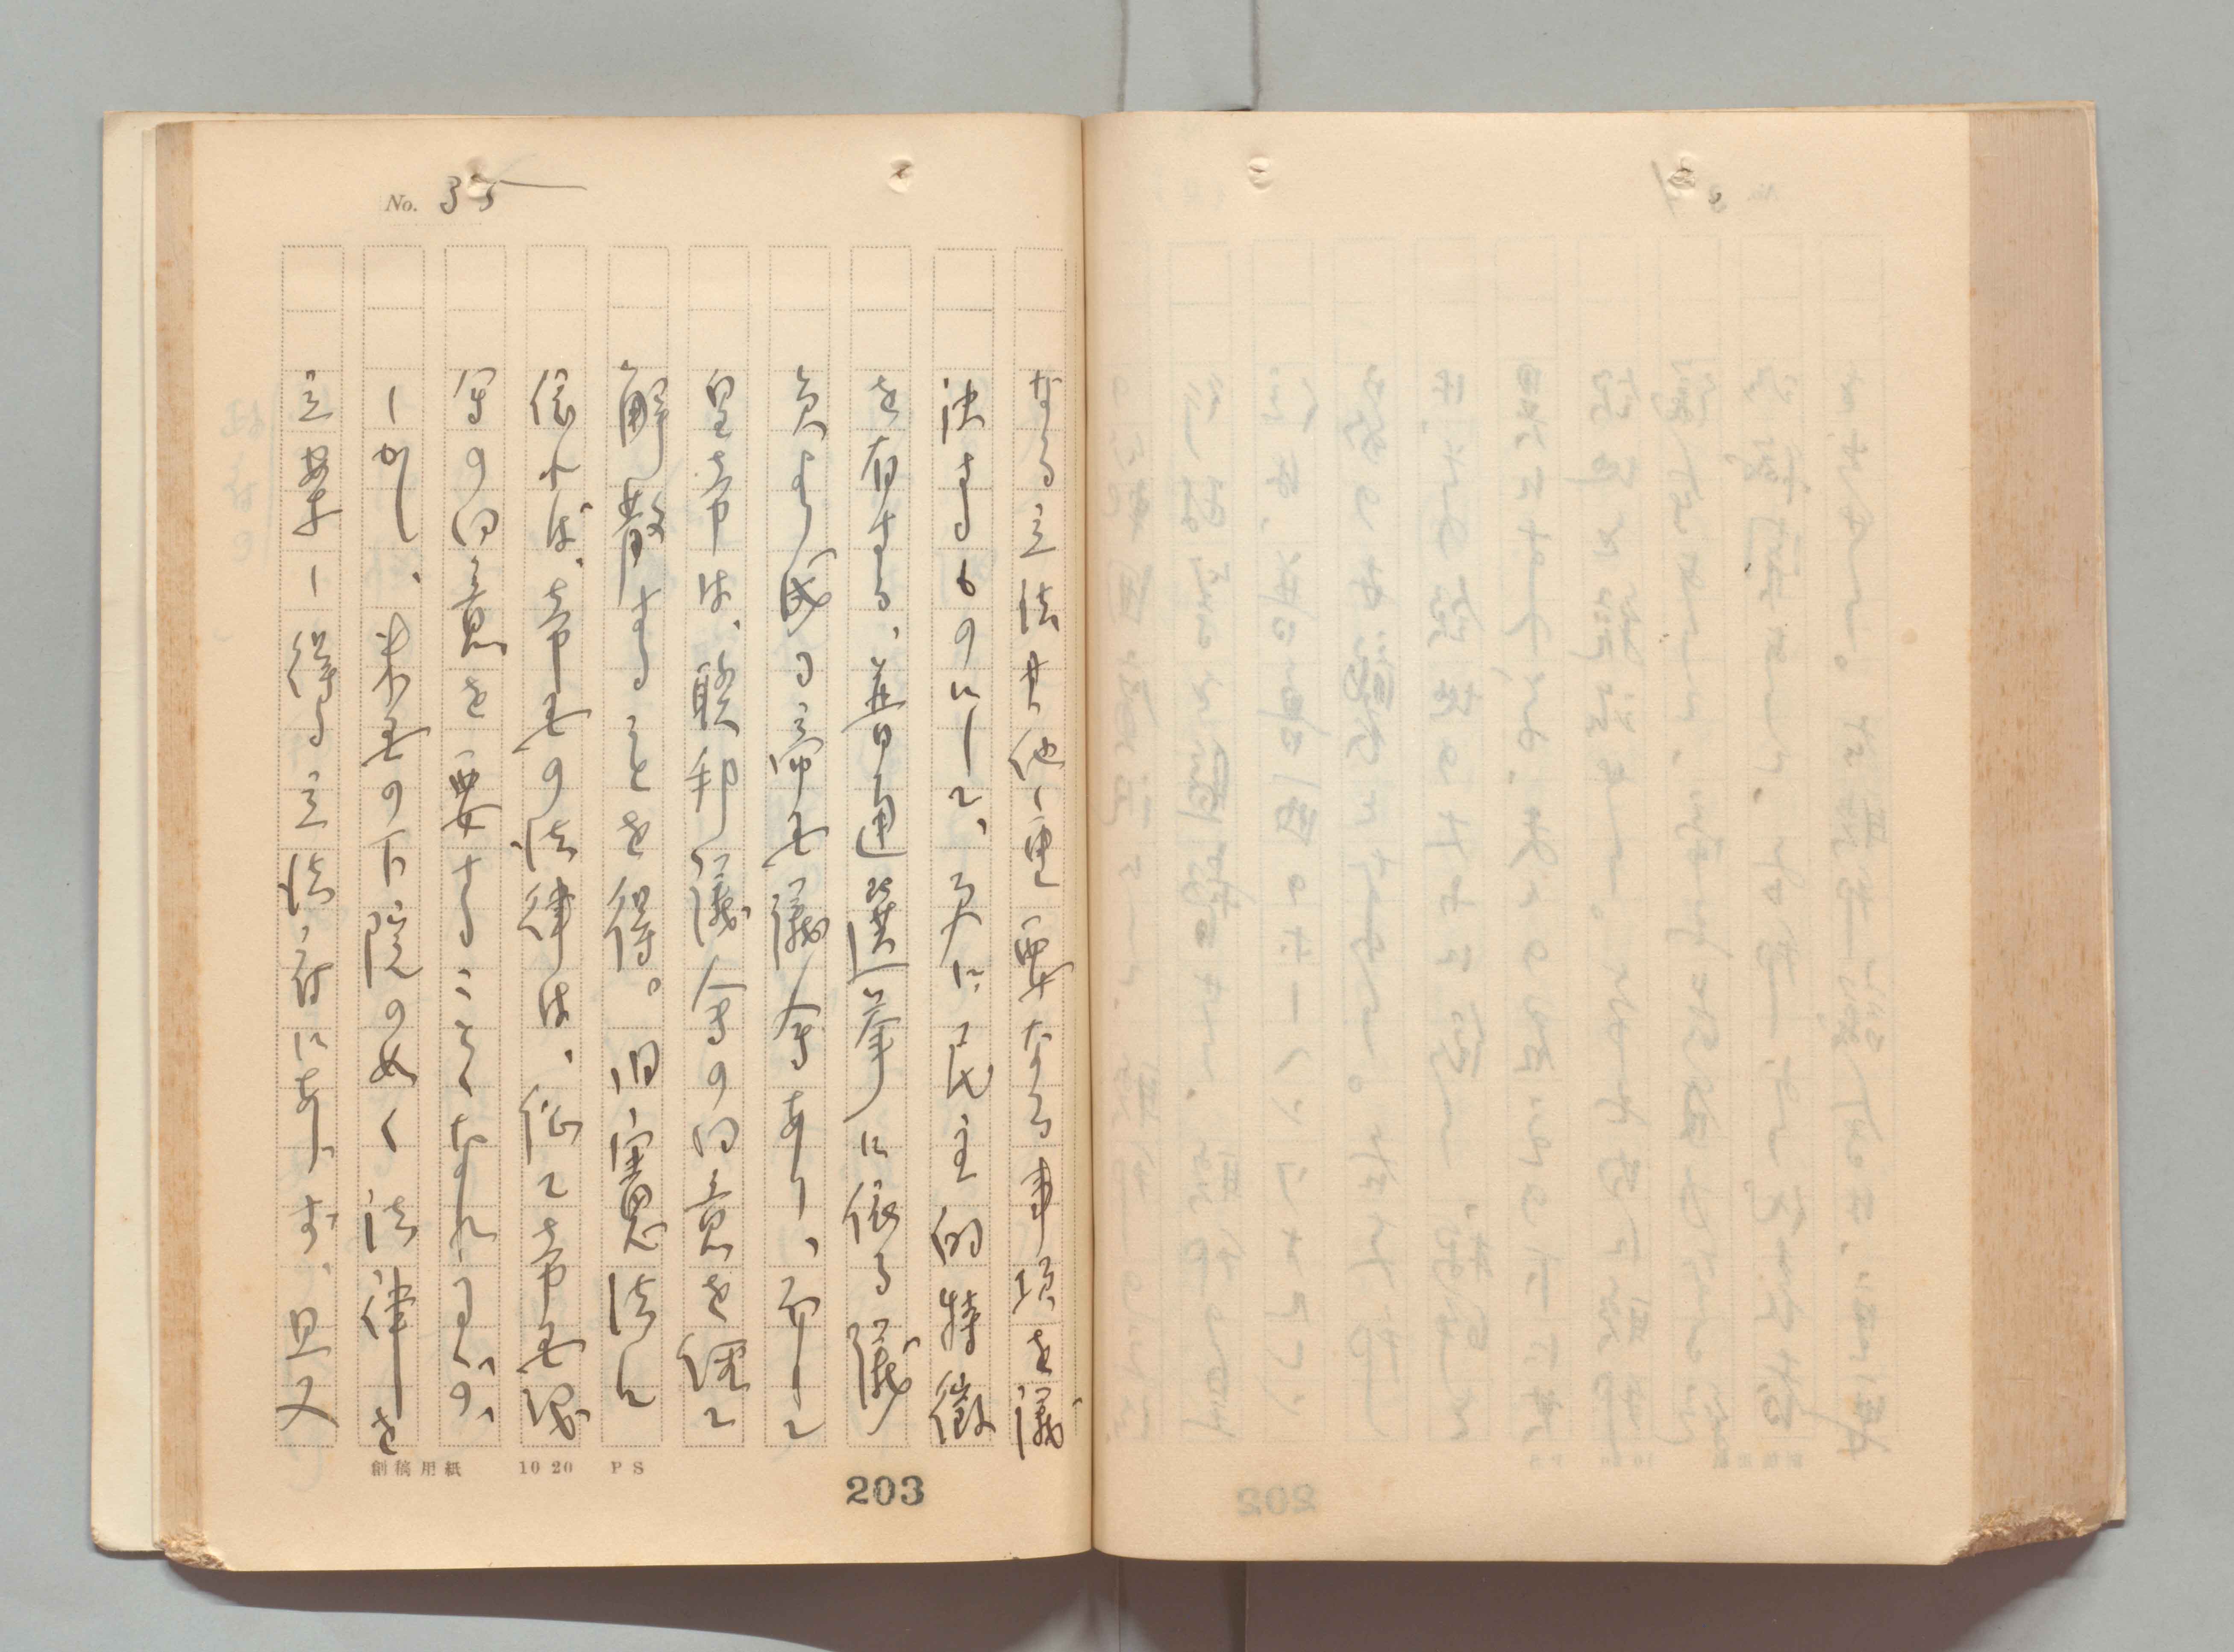 No. 35
なる立法其他重要なる事項を議
決するものにして、更に民主的特徴
を有する、普通選挙に依る議
員より成る帝国議会あり、而して
皇帝は、聯邦議会の同意を経て
解散することを得。旧憲法に
依れば、帝国の法律は、凡て帝国議
会の同意を要することくなれるが、
しかし、米国の下院の如く法律を
立案し得る立法府にあらず、且又
創稿用紙 10 20 PS
203